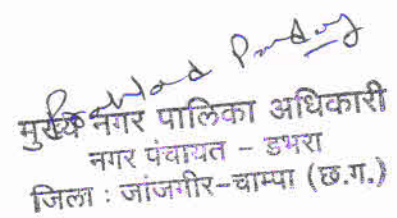 मुख्य नगर पालिका अधिकारी
नगर पंचायत - डभरा
जिला : जांजगीर-चाम्पा (छ.ग.)